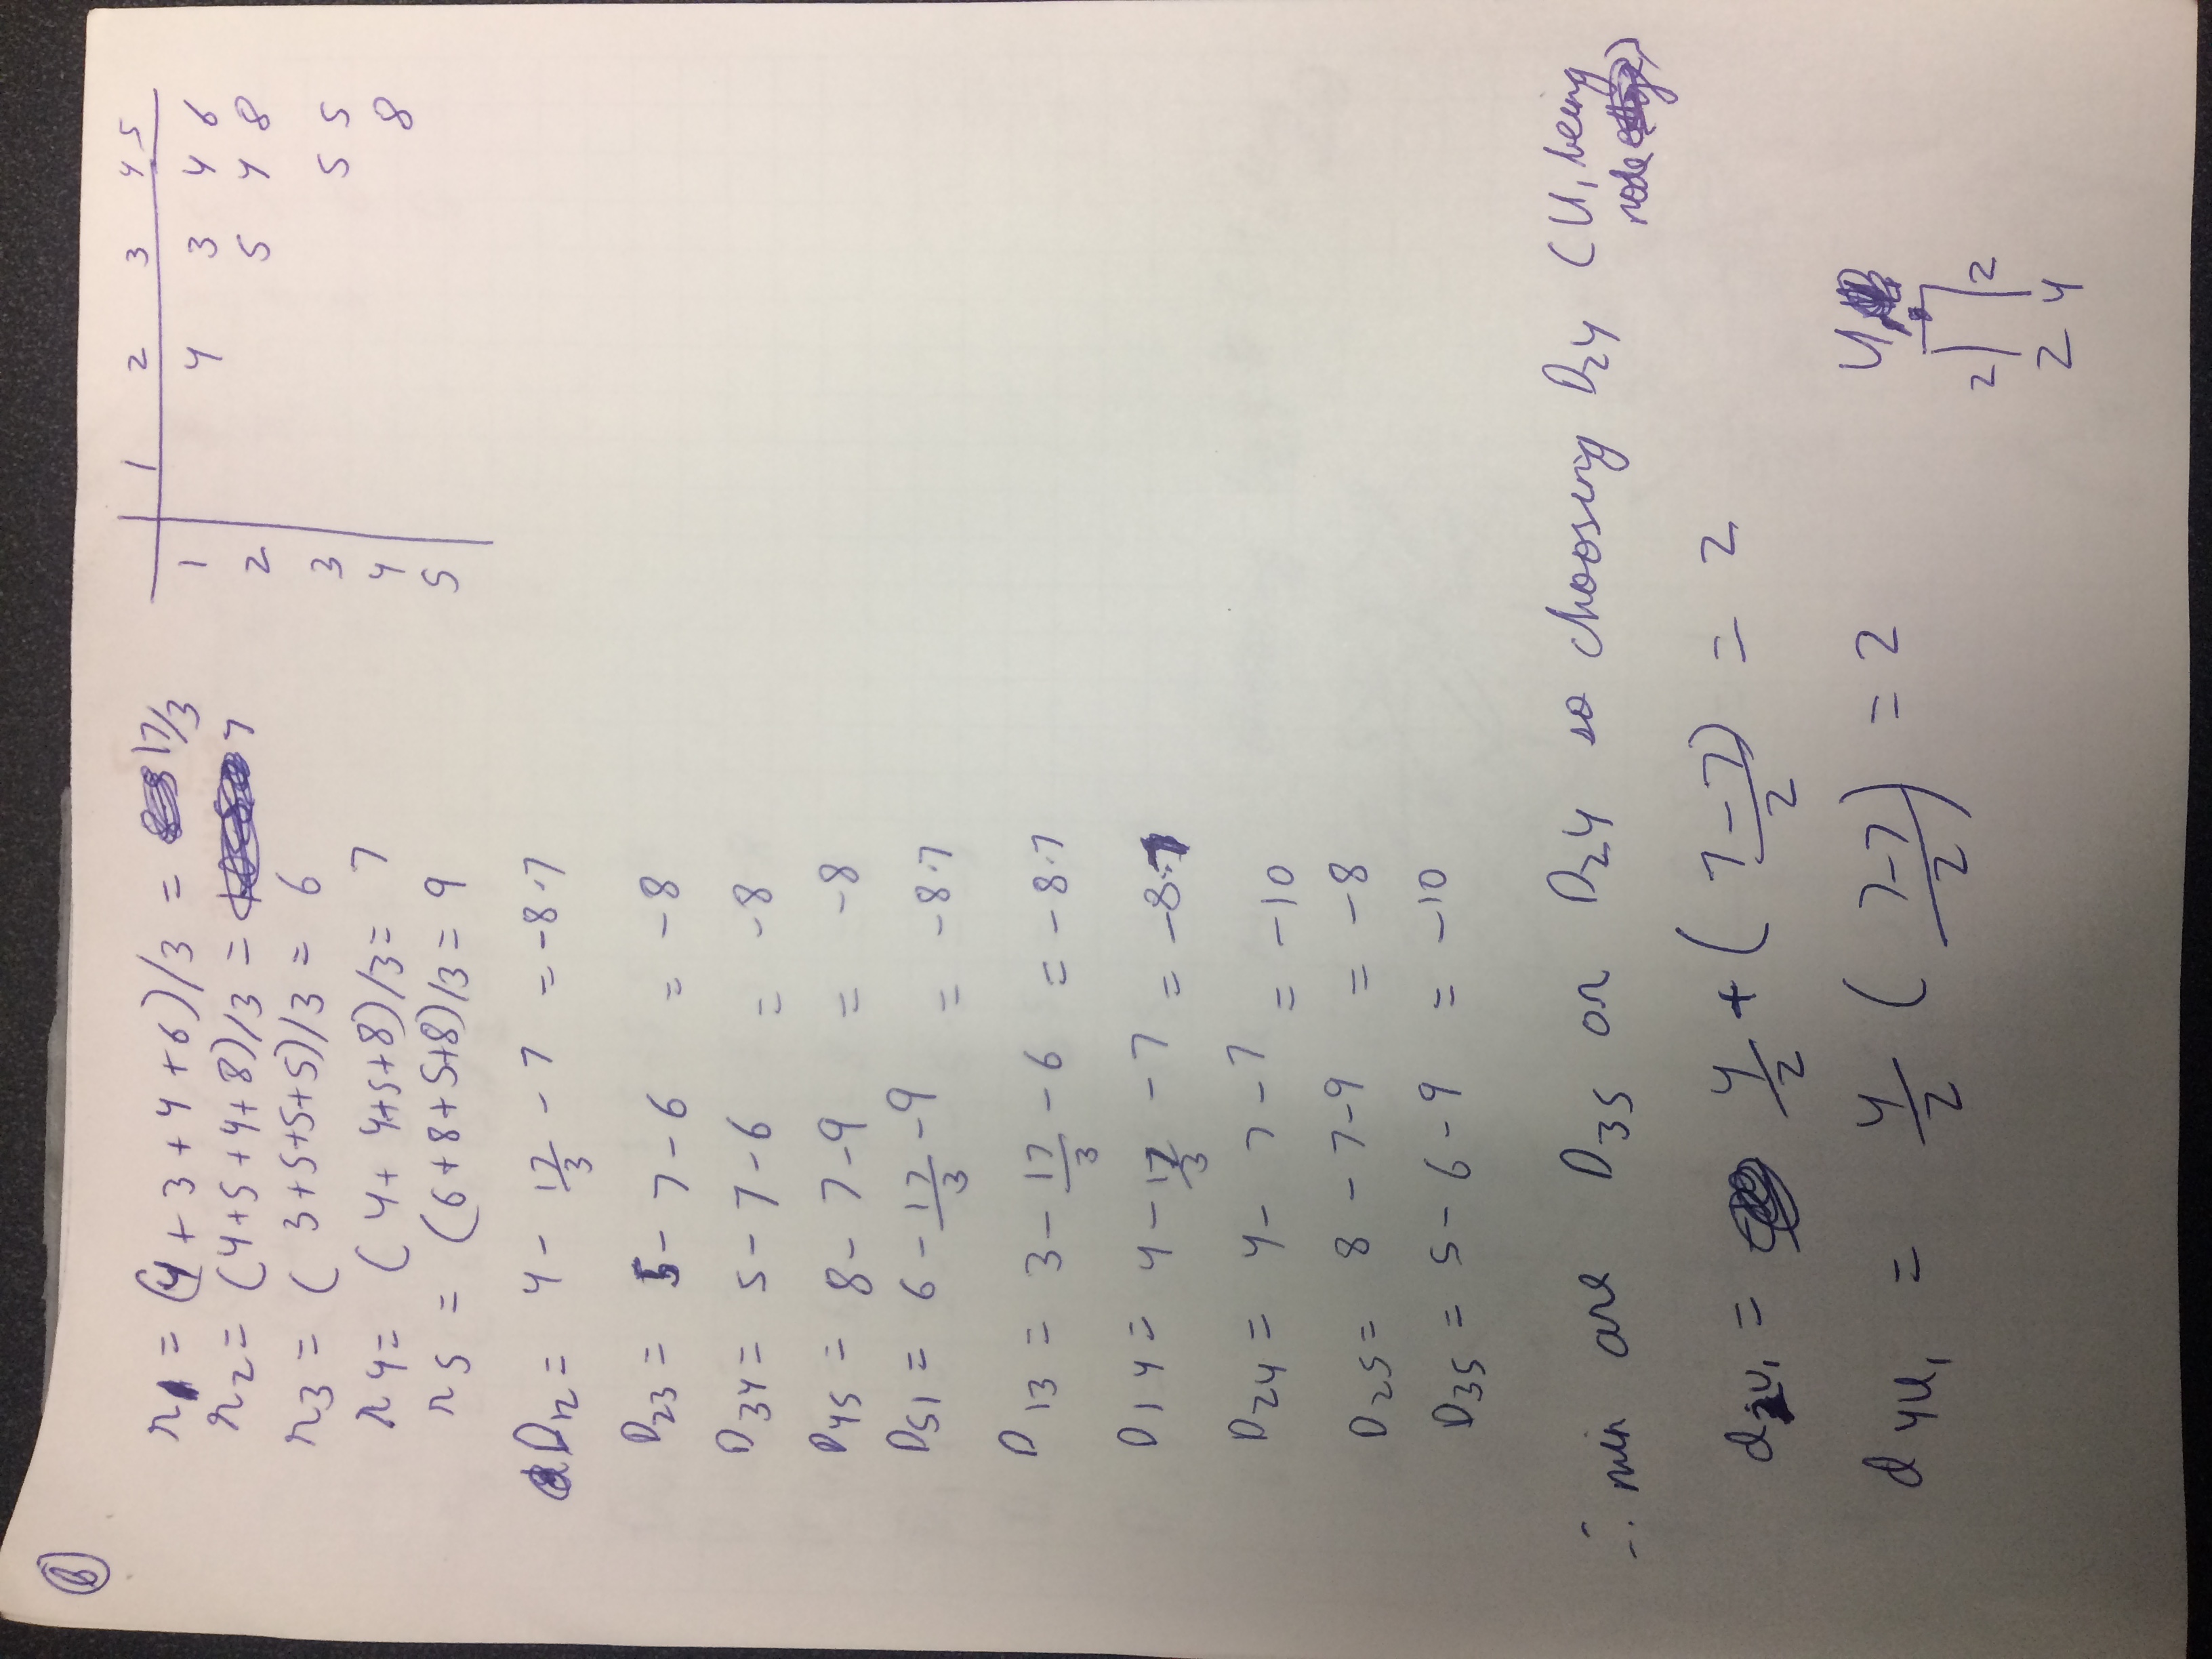 6
r1 = (4 + 3 + 4 + 6)/3 = 17/3
r2 = (4+5+4+8)/3 = 7
r3 = (3+5+5+5)/3 = 6
r4 = (4+ 4+5+8)/3 = 7
r5 = (6+8+5+8)/3 = 9
1 2 3 4 5
1 4 3 4 6
2 5 4 8
3 5 5
4 8
5
D12 = 4 - 17/3 - 7 = -8.7
D23 = 5 - 7 - 6 = -8
D34 = 5 - 7 - 6 = -8
D45 = 8 - 7 - 9 = -8
D51 = 6 - 17/3 - 9 = -8.7
D13 = 3 - 17/3 - 6 = -8.7
D14 = 4 - 17/3 - 7 = -8.7
D24 = 4 - 7 - 7 = -10
D25 = 8 - 7 - 9 = -8
D35 = 5 - 6 - 9 = -10
∴ min are D35 or D24 so choosing D24 (U1 being
node)
d2U1 = 4/2 + (7-7)/2 = 2
d4U1 = 4/2 (7-7)/2 = 2
U1
2 2
2 4